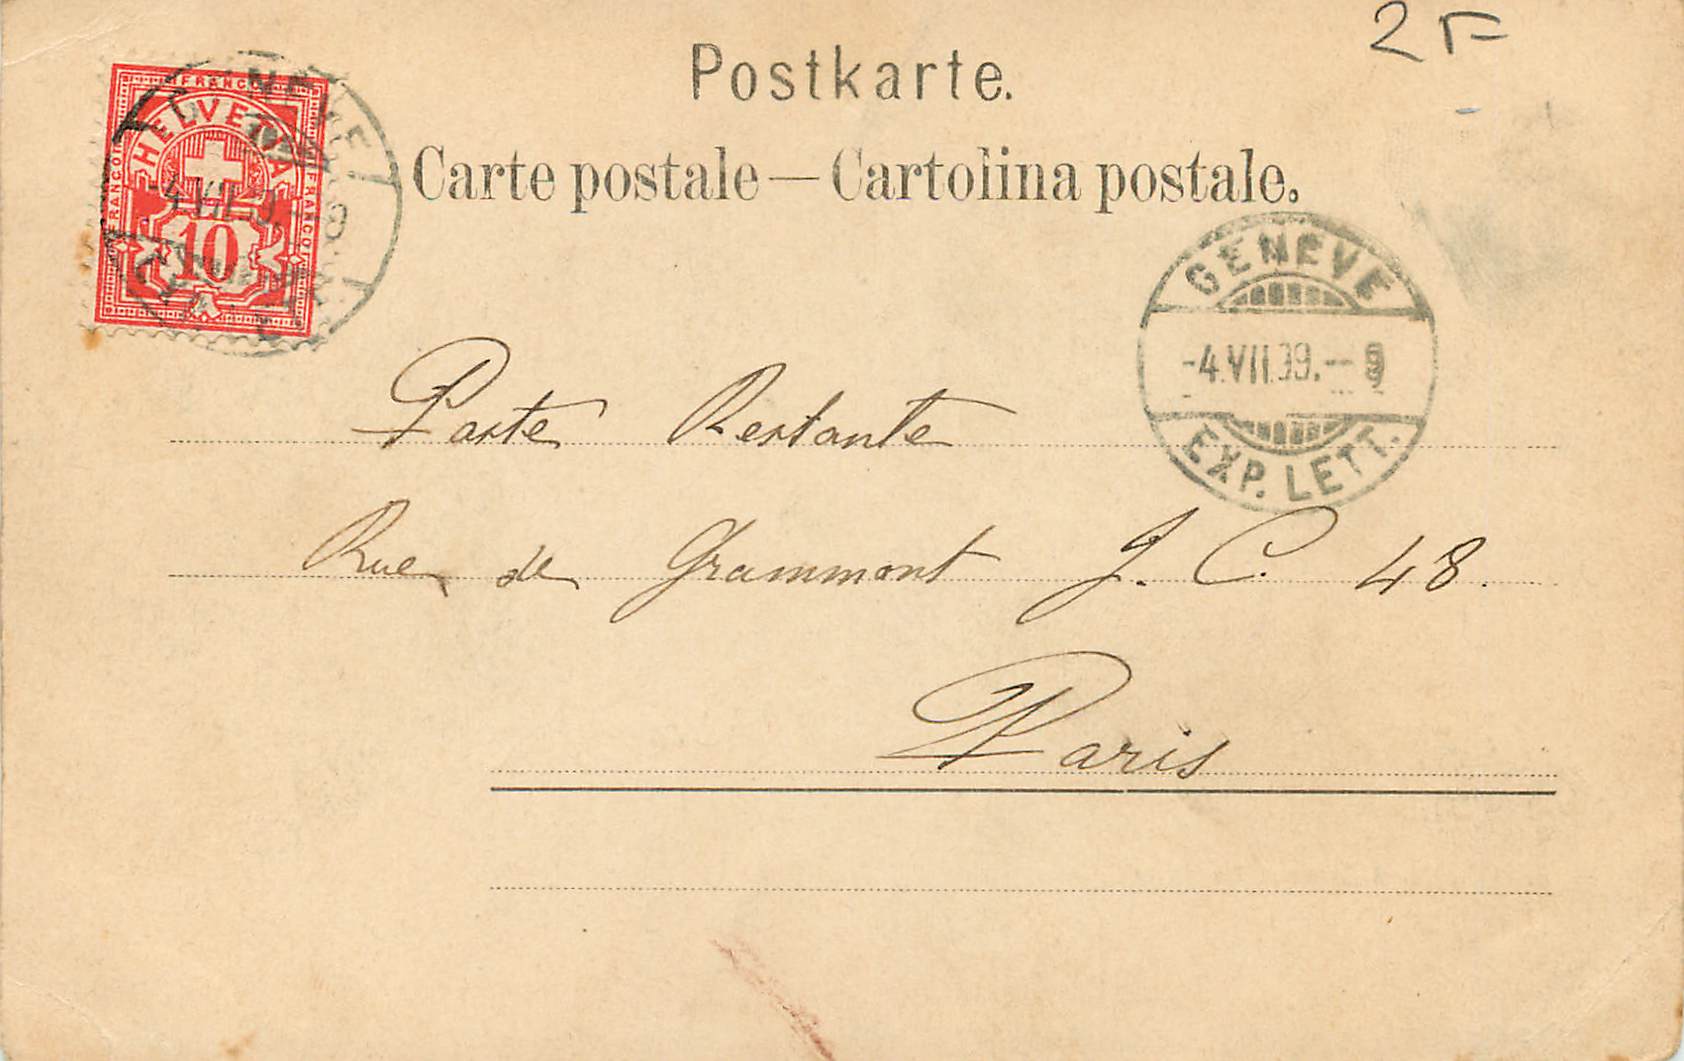 2 F
Postkarte.
Carte postale — Cartolina postale.
FRANCO
FRANCO
FRANCO
HELVETIA
10
GENÈVE
-4.VII.99.--9
EXP. LETT.
Poste Restante
Rue de Grammont J. C. 48.
Paris